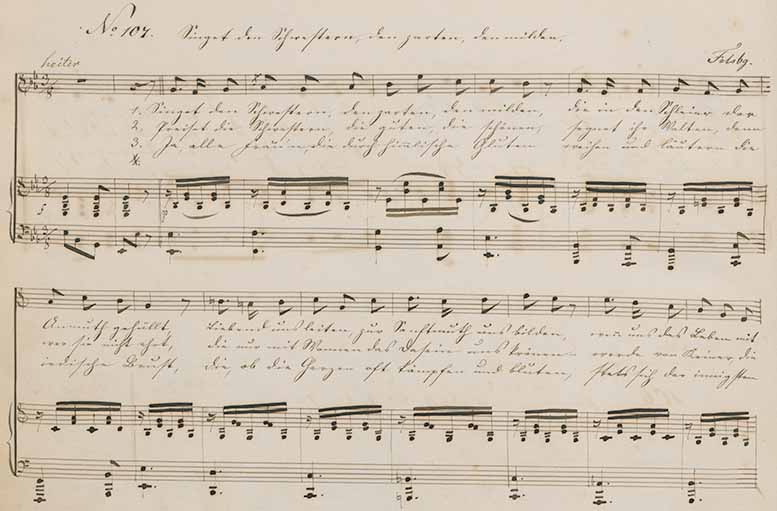 No 107. Singet den Schwestern, den zarten, den milden.
heiter
Felsbg.
1. Singet den Schwestern, den zarten, den milden, die in den Schleier der
2. Preiset die Schwestern, die guten, die schönen, segnet ihr Walten, denn
3. Ja alle Frauen, die durch himmlische Gluten reihen und läutern die
4.
Anmuth gehüllt, liebend uns leiten, zur Sanftmuth uns bilden, uns das Leben mit
wer sie nicht ehrt, die nur mit Wonnen das Dasein uns krönen werde von Keiner die
irdische Brust, die, ob die Herzen oft kämpfen und bluten, stets sich der innigsten